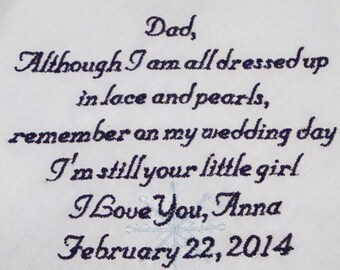 Dad,
Although I am all dressed up
in lace and pearls,
remember on my wedding day
I'm still your little girl
I Love You, Anna
February 22, 2014